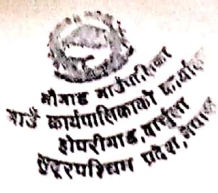 नौगाड गाउँपालिका
गाउँ कार्यपालिकाको कार्यालय
होपरीगाड दार्चुला
सुदूरपश्चिम प्रदेश, नेपाल